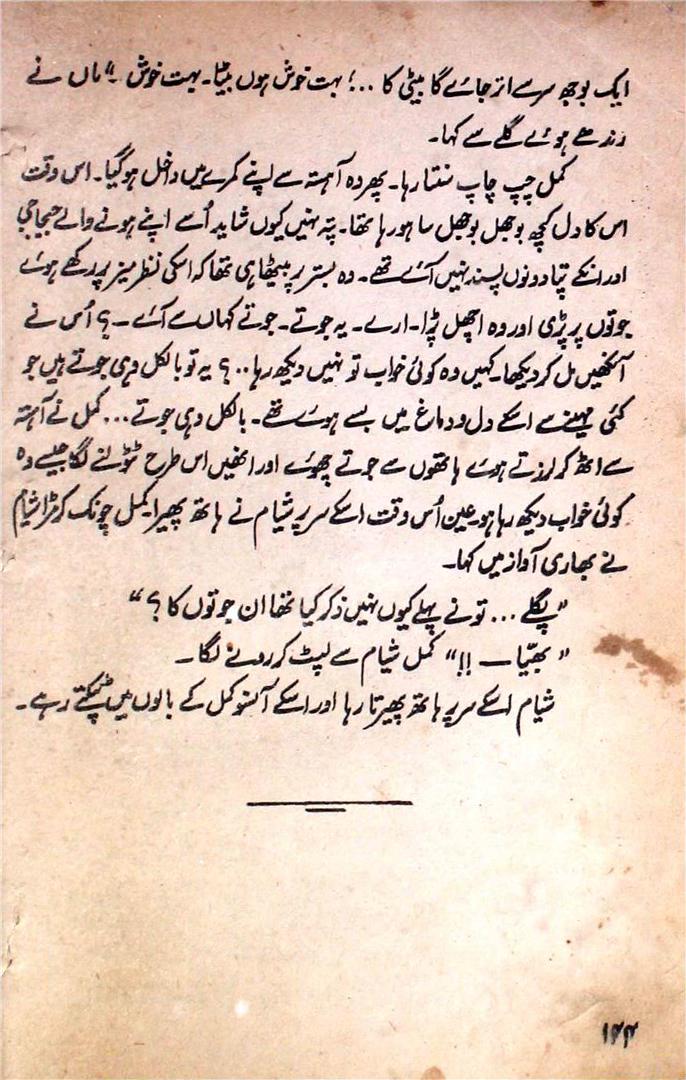 ایک بوجھ سر سے اتر جائے گا بیٹی کا ...؛ بہت خوش ہوں بیٹا۔ بہت خوش ۔" ماں نے
رندھے ہوئے گلے سے کہا۔
کمل چپ چاپ سنتا رہا۔ پھر وہ آہستہ سے اپنے کمرے میں داخل ہو گیا۔ اس وقت
اس کا دل کچھ بوجھل بوجھل سا ہو رہا تھا۔ پتہ نہیں کیوں شاید اُسے اپنے ہونے والے جیجا جی
اور انکے پتا دونوں پسند نہیں آئے تھے۔ وہ بستر پر بیٹھا ہی تھا کہ اسکی نظر میز پر رکھے ہوئے
جوتوں پر پڑی اور وہ اچھل پڑا۔ ارے۔ یہ جوتے۔ جوتے کہاں سے آئے ۔؟ اُس نے
آنکھیں مل کر دیکھا۔ کہیں وہ کوئی خواب تو نہیں دیکھ رہا ..؟ یہ تو بالکل وہی جوتے ہیں جو
کئی مہینے سے اسکے دل و دماغ میں بسے ہوئے تھے۔ بالکل وہی جوتے ... کمل نے آہستہ
سے اٹھ کر لرزتے ہوئے ہاتھوں سے جوتے چھوئے اور انھیں اس طرح ٹٹولنے لگا جیسے وہ
کوئی خواب دیکھ رہا ہو۔ عین اُس وقت اسکے سر پر شیام نے ہاتھ پھیرا۔ کمل چونک کر مڑا شیام
نے بھاری آواز میں کہا۔
"پگلے ... تو نے پہلے کیوں نہیں ذکر کیا تھا ان جوتوں کا ؟"
"بھیّا — !!" کمل شیام سے لپٹ کر رونے لگا۔
شیام اسکے سر پر ہاتھ پھیرتا رہا اور اسکے آنسو کمل کے بالوں میں ٹپکتے رہے۔
۱۴۴